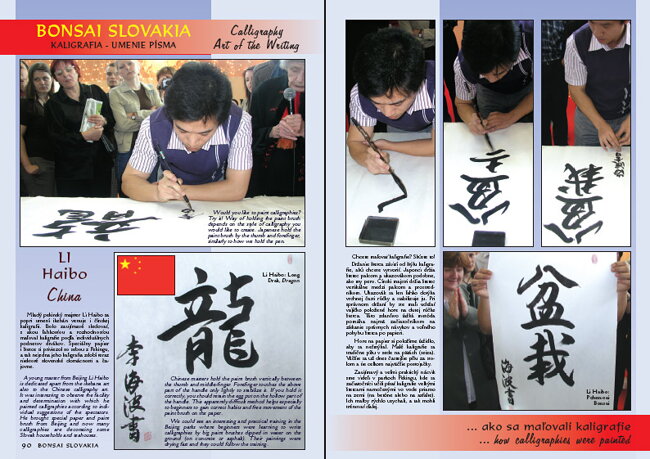 BONSAI SLOVAKIA
KALIGRAFIA - UMENIE PÍSMA
Calligraphy
Art of the Writing
Would you like to paint calligraphies?
Try it! Way of holding the paint brush
depends on the style of calligraphy you
would like to create. Japanese hold the
paint brush by the thumb and forefinger,
similarly to how we hold the pen.
LI
Haibo
China
Mladý pekinský majster Li Haibo sa
popri umení
venuje i čínskej
kaligrafii. Bolo zaujímavé sledovať,
s akou ľahkosťou a rozhodnosťou
maľoval kaligrafie podľa individuálnych
podnetov divákov. Špeciálny papier
i štetce si priviezol so sebou z Pekingu,
a tak nejedna jeho kaligrafia zdobí teraz
niektoré slovenské domácnosti a
A young master from Beijing Li Haibo
is dedicated apart from the
art
also to the Chinese calligraphy art.
It was interesting to observe the facility
and determination with which he
painted calligraphies according to indi-
vidual suggestions of the spectators.
He brought special paper and paint
brush from Beijing and now many
calligraphies are decorating some
Slovak households and teahouses.
90 BONSAI SLOVAKIA
Li Haibo: Long
Drak, Dragon
龍
李海波書
Chinese masters hold the paint brush vertically between
the thumb and middlefinger. Forefinger touches the above
area of the handle only lightly to stabilize it. If you hold it
correctly, you should retain the egg put on the hollow part of
the handle. This apparently difficult method helps especially
to beginners to gain correct habits and free movement of the
paint brush on the paper.
We could see an interesting and practical training in the
Beijing parks where beginners were learning to write
calligraphies by big paint brushes dipped in water on the
ground (on concrete or asphalt). Their paintings were
drying fast and they could follow the training.
Chcete maľovať kaligrafie? Skúste to!
Držanie štetca závisí od štýlu kaligra-
fie, akú chcete vytvoriť. Japonci držia
štetec palcom a ukazovákom podobne,
ako my pero. Čínski majstri držia štetec
vertikálne medzi palcom a prostred-
níkom. Ukazovák sa len ľahko dotýka
vrchnej časti rúčky a stabilizuje ju. Pri
správnom držaní by ste mali udržať
vajíčko položené hore na dutej rúčke
štetca. Táto zdanlivo ťažká metóda
pomáha najmä začiatočníkom na
získanie správnych návykov a voľného
pohybu štetca po papieri.
Hore na papier si položíme ťažidlo,
aby sa nehýbal. Malé kaligrafie sa
tradične píšu v sede na pätách (seiza).
Väčšie sa už dnes častejšie píšu za sto-
lom a tie celkom najväčšie postojačky.
Zaujímavý a veľmi praktický nácvik
sme videli v parkoch Pekingu, kde sa
začiatočníci učili písať kaligrafie veľkými
štetcami namočenými vo vode priamo
na zemi (na betóne alebo na asfalte).
Ich maľby rýchlo vysychali, a tak mohli
trénovať ďalej.
盆栽
Li Haibo:
Bonsai
... ako sa maľovali kaligrafie
... how calligraphies were painted